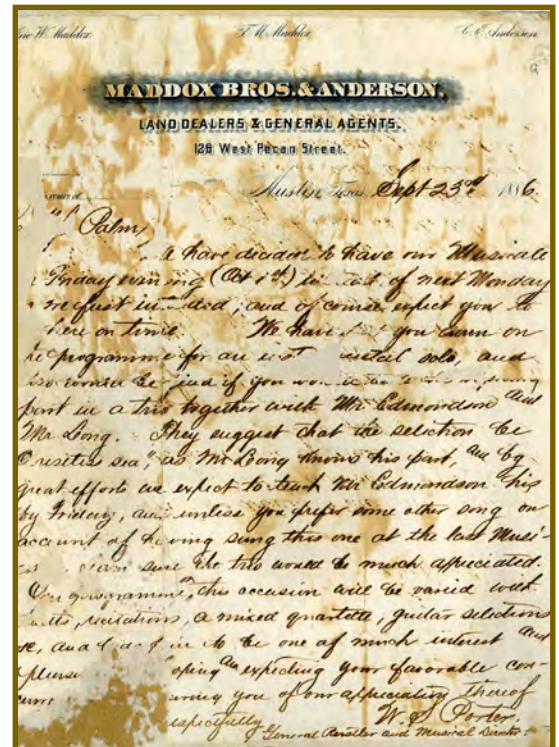 W. Maddox F. M. Maddox C. E. Anderson
MADDOX BROS. & ANDERSON,
LAND DEALERS & GENERAL AGENTS,
128 West Pecan Street.
Austin, Texas, Sept 23rd 1886
Palm,
have decided to have our Musicale
Friday evening (Oct 1st) of next Monday
request ; and of course expect you to
here on time. We have you down on
programme for an solo, and
if you
part in a trio together with Mr Edmondson and
Mr Long. They suggest that the selection be
sea," as Mr Long knows his part, and by
great efforts we expect to teach Mr Edmondson his
by Friday, and unless you prefer some other song on
account of having sung this one at the last Musi-
sure the trio would be much appreciated.
Our programme, this occasion will be varied with
recitations, a mixed quartette, guitar selections
and to be one of much interest and
expecting your favorable con-
you of our appreciation thereof
W. S. Porter.
General Rustler and Musical Director.